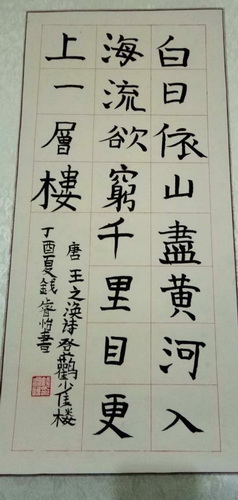 白日依山盡黃河入
海流欲窮千里目更
上一層樓
唐王之渙詩登鸛雀樓
丁酉夏錢睿怡書